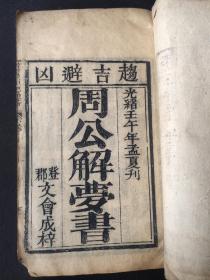 趨吉避凶
光緒壬午年孟夏刊
周公解夢書
登郡文會成梓